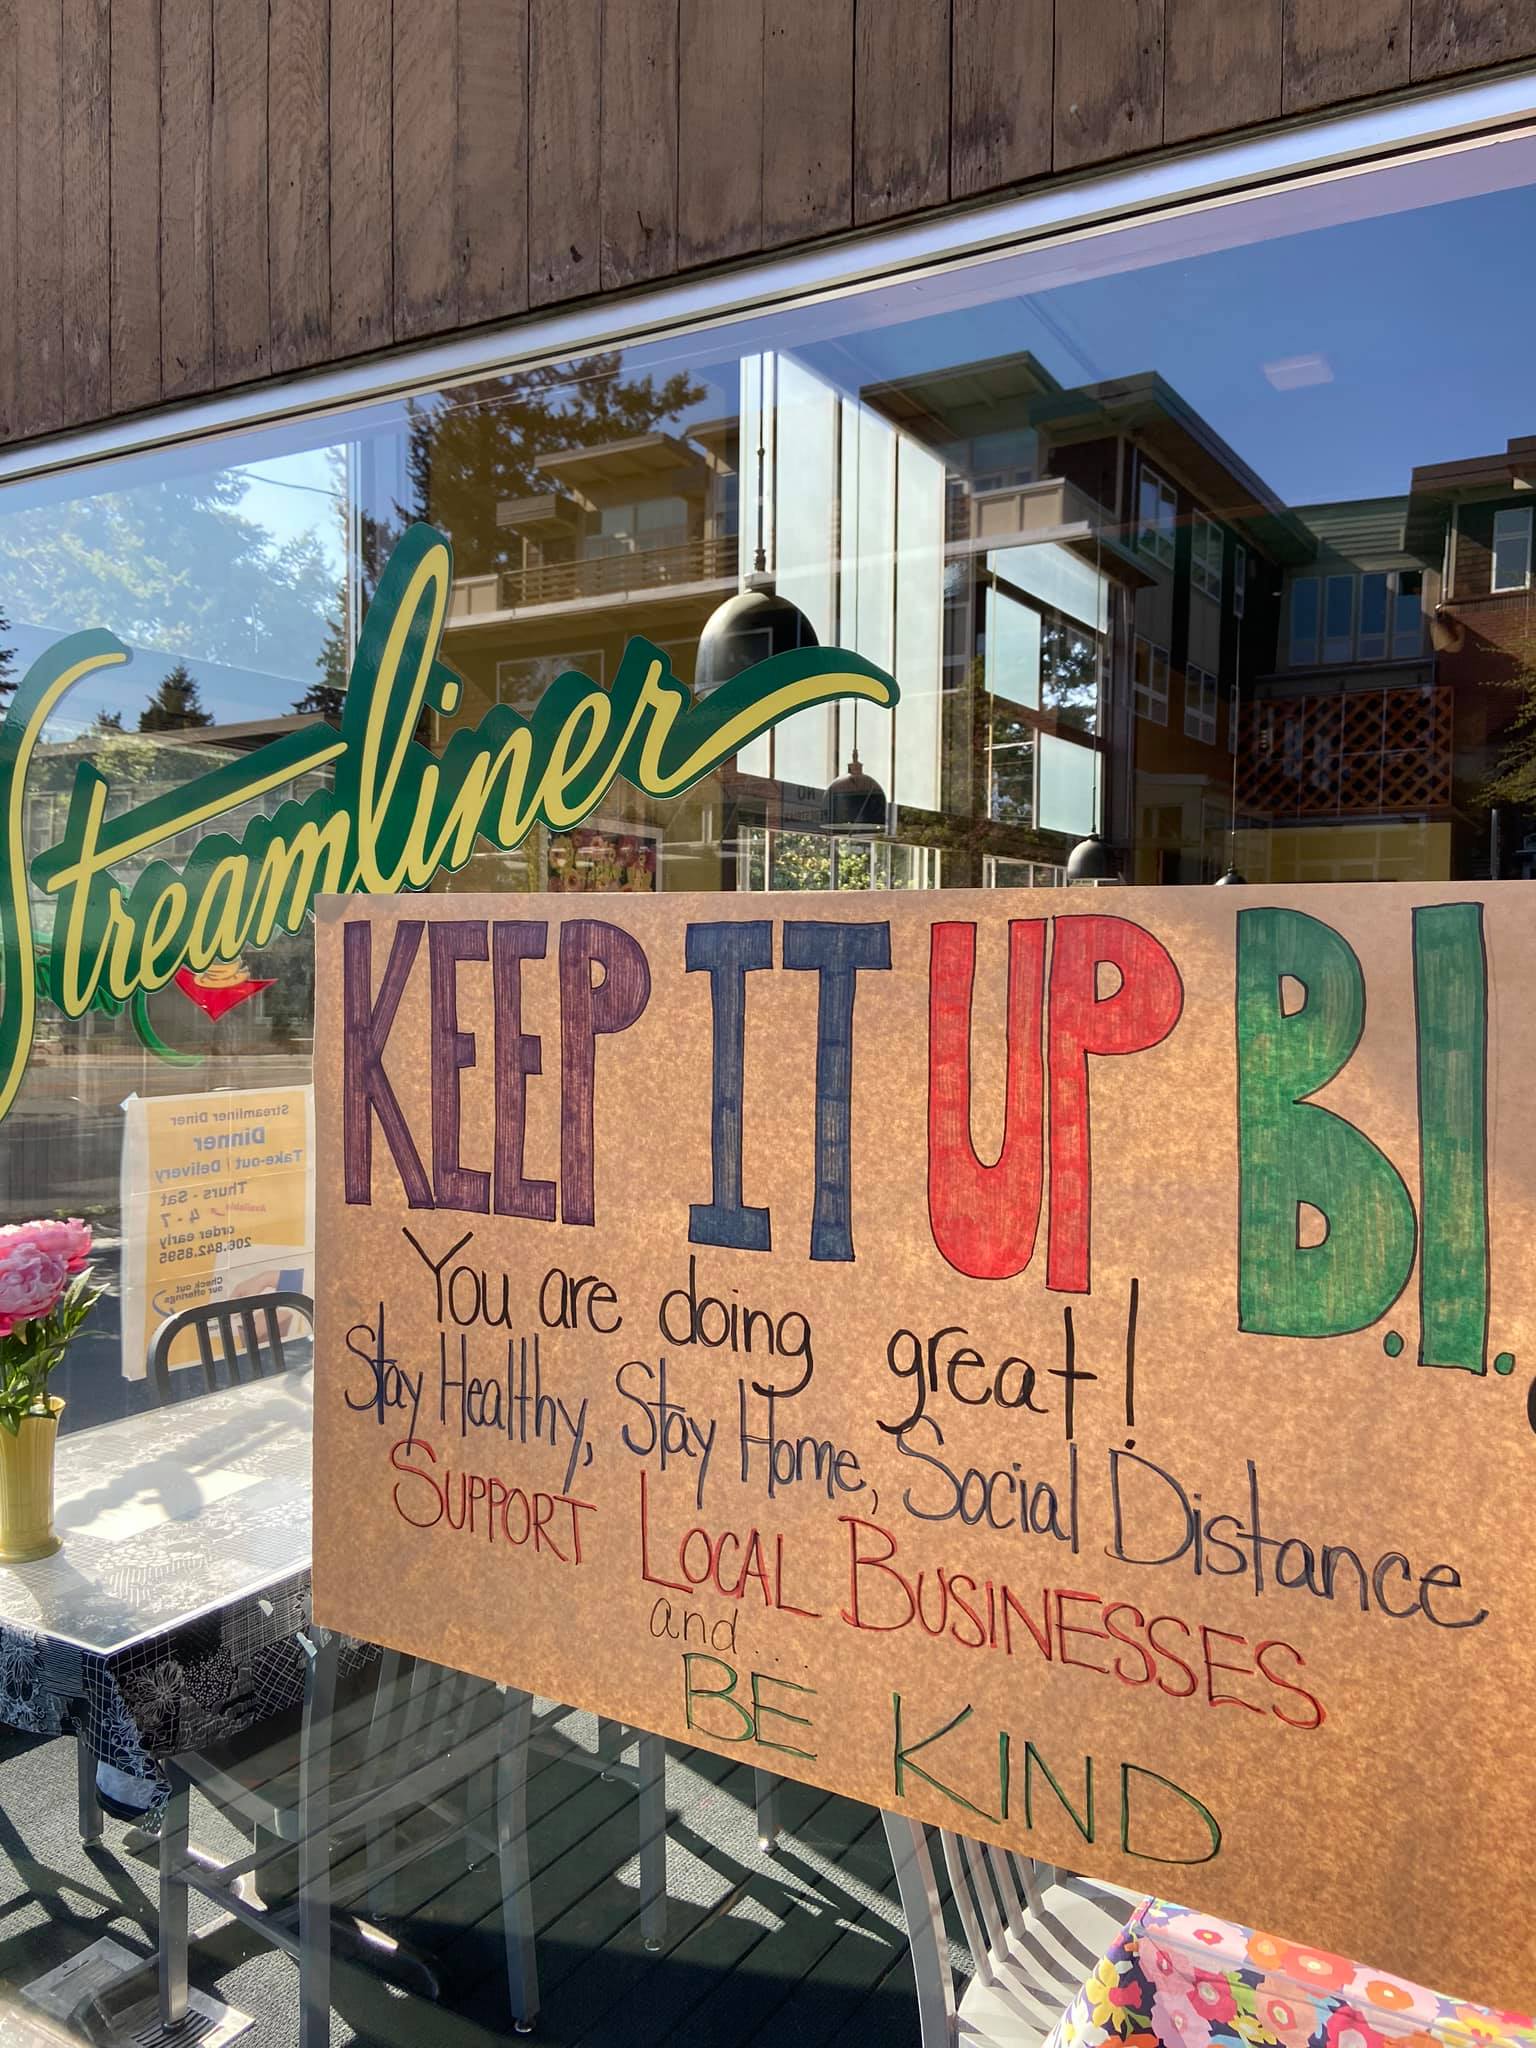 Streamliner
KEEP IT UP B.I.
You are doing great!
Stay Healthy, Stay Home, Social Distance
SUPPORT LOCAL BUSINESSES
and....
BE KIND
Streamliner Diner
Dinner
Take-out / Delivery
Thurs - Sat
Available
4 - 7
order early
206.842.8595
Check out
our offerings